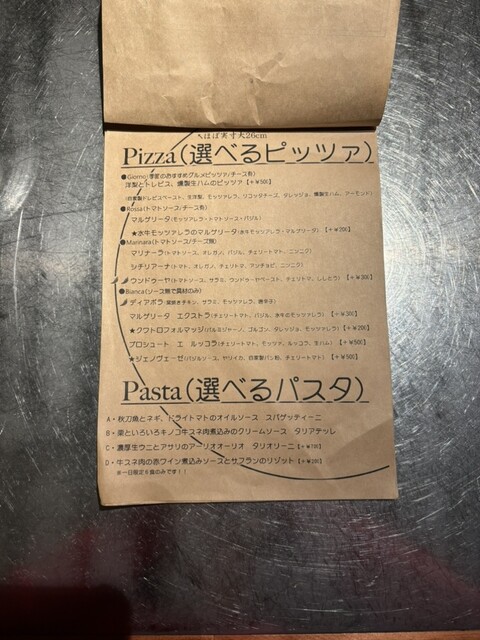 ↖ほぼ実寸大26cm
Pizza(選べるピッツァ)
●Giorno(季節のおすすめグルメピッツァ/チーズ有)
洋梨とトレビス、燻製生ハムのピッツァ【+¥500】
●Rossa(トマトソース/チーズ有)
マルゲリータ(モッツァレラ・トマトソース・バジル)
★水牛モッツァレラのマルゲリータ(水牛モッツァレラ・マルゲリータ)【+¥200】
●Marinara(トマトソース/チーズ無)
マリナーラ(トマトソース、オレガノ、バジル、チェリートマト、ニンニク)
シチリアーナ(トマト、オレガノ、チェリトマ、アンチョビ、ニンニク)
ウンドゥーヤ(トマトソース、サラミ、ウンドゥーヤペースト、チェリトマ、ししとう)【+¥300】
●Bianca(ソース無で具材のみ)
ディアボラ(サラミ、モッツァレラ、唐辛子)
マルゲリータ エクストラ(チェリートマト、バジル、水牛のモッツァレラ)【+¥300】
★クワトロフォルマッジ(パルミジャーノ、ゴルゴン、タレッジョ、モッツァレラ)【+¥200】
プロシュート エ ルッコラ(チェリートマト、モッツァ、ルッコラ、生ハム)【+¥500】
★ジェノヴェーゼ(バジルソース、ヤリイカ、自家製パン粉、チェリートマト)【+¥500】
Pasta(選べるパスタ)
A・秋刀魚とネギ、ドライトマトのオイルソース スパゲッティーニ
B・栗といろいろキノコ牛スネ肉煮込みのクリームソース タリアテッレ
C・濃厚生ウニとアサリのアーリオオーリオ タリオリーニ
D・牛スネ肉の赤ワイン煮込みソースとサフランのリゾット
※一日限定6食のみです!!